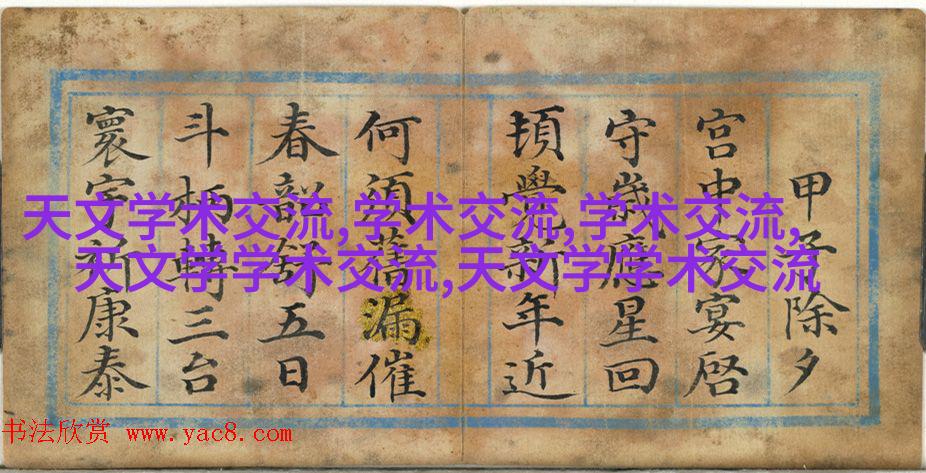 甲子除夕
宮中家宴啓
守歲應星回
頓覺新年近
何須舊漏催
春韶舒五日
斗柄轉三台
寰宇祈康泰
天文学术交流,学术交流,学术交流,
天文学学术交流,天文学学术交流
书法欣赏 www.yac8.com